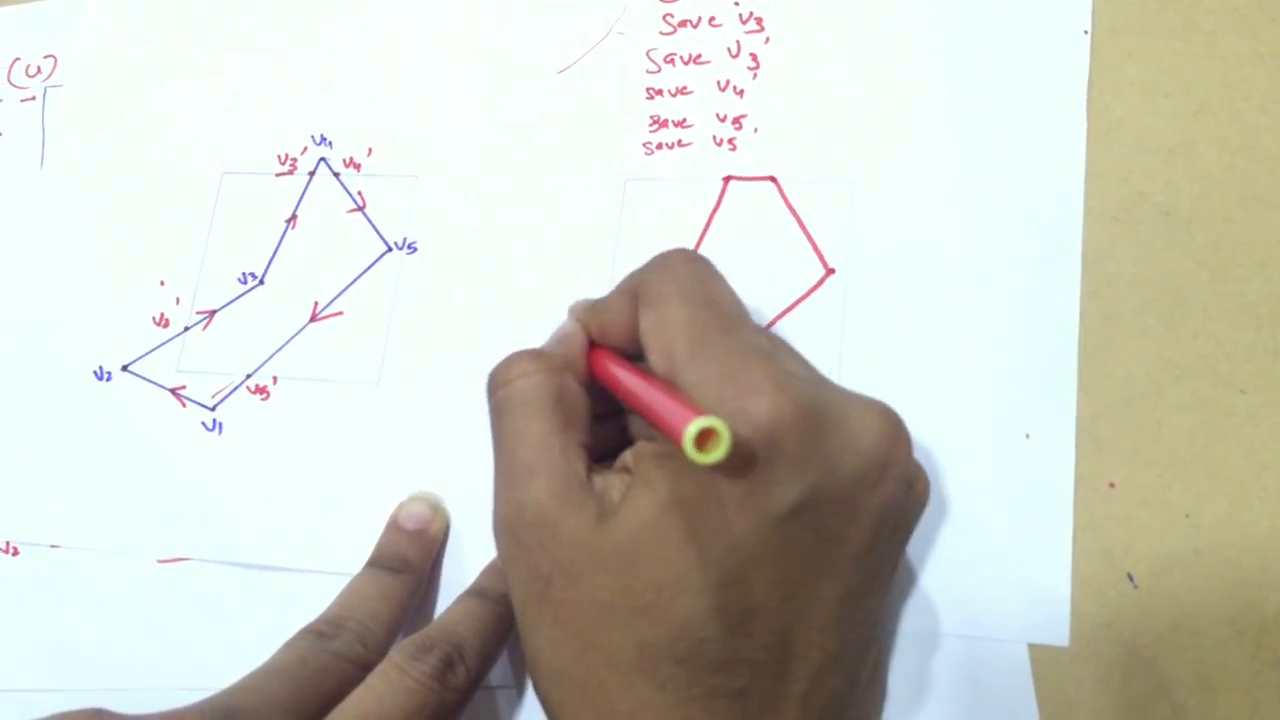 (4)
Save v3
Save v3'
save v4'
save v5
save v5'
v4
v3'
v4'
v5
v3
v2'
v2
v5'
v1
v2